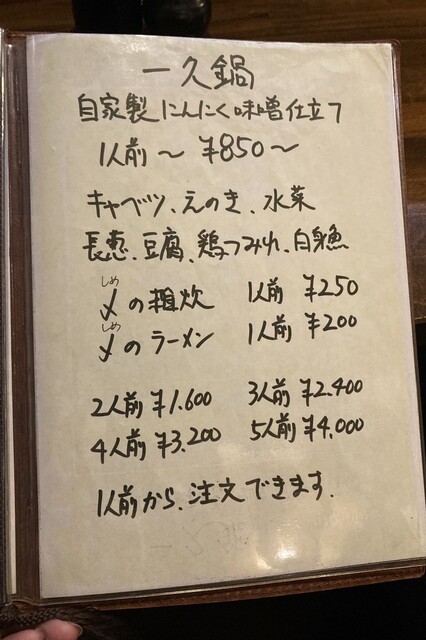 一久鍋
自家製にんにく味噌仕立て
1人前〜¥850〜
キャベツ、えのき、水菜
長葱、豆腐、鶏つみれ、白身魚
しめ
〆の雑炊 1人前 ¥250
しめ
〆のラーメン 1人前 ¥200
2人前 ¥1.600 3人前 ¥2.400
4人前 ¥3,200 5人前 ¥4,000
1人前から、注文できます.